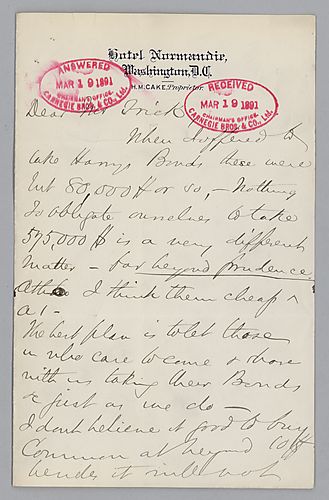 Hotel Normandie,
Washington, D.C.
H.M. CAKE, Proprietor.
ANSWERED
MAR 19 1891
CHAIRMAN'S OFFICE.
CARNEGIE BROS. & CO., Ltd.
RECEIVED
MAR 19 1891
CHAIRMAN'S OFFICE.
CARNEGIE BROS. & CO., Ltd.
Dear Mr Frick
When I offered to
take Harrys Bonds these were
but 80,000 $ or so, - Nothing
To obligate ourselves to take
575,000 $ is a very different
matter - far beyond prudence
altho I think them cheap
a 1 -
The best plan is to let those
in who care to come & share
with us taking their Bonds
& just as we do -
I dont believe it good to buy
Common at beyond
besides it will not